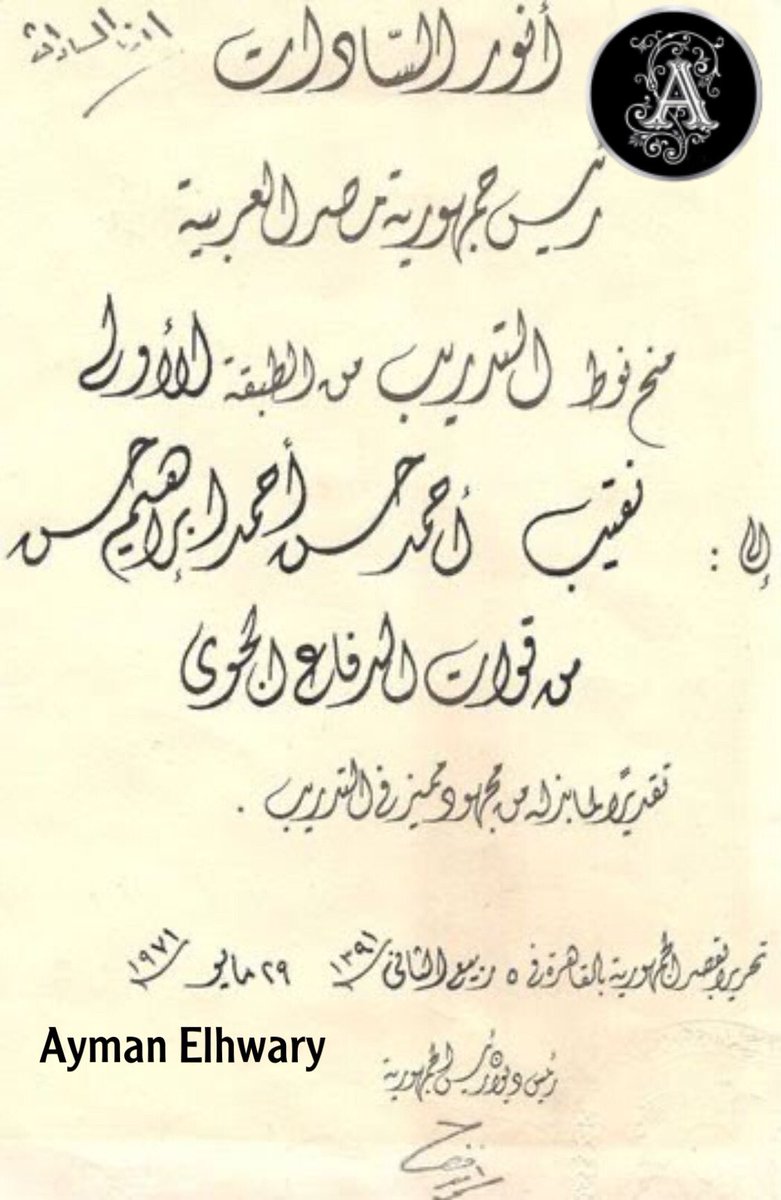 أنور السادات
أنور السّادات
A
رئيس جمهورية مصر العربية
منح نوط التدريب من الطبقة الأولى
إلى : نقيب أحمد حسن أحمد إبراهيم حسن
من قوات الدفاع الجوى
تقديرًا لما بذله من مجهود مميز فى التدريب .
تحريرا بقصر الجمهورية بالقاهرة فى ٥ ربيع الثانى ١٣٩١ ٢٩ مايو ١٩٧١
Ayman Elhwary
رئيس ديوان رئيس الجمهورية